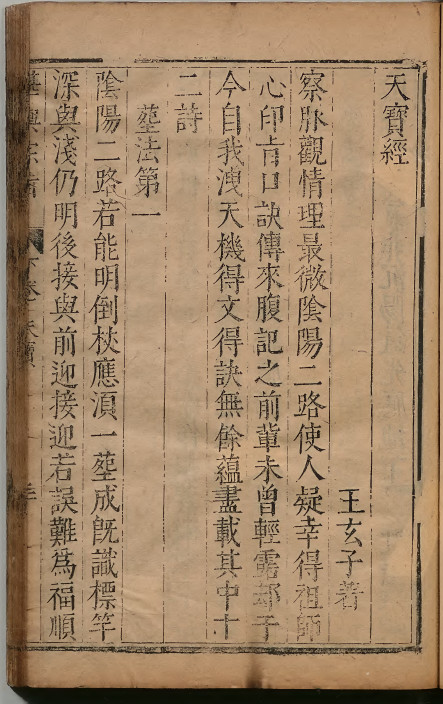 天寶經
王玄子著
察脉觀情理最微陰陽二路使人疑幸得祖師
心印肯口訣傳來腹記之前輩未曾輕露却于
今自我洩天機得文得訣無餘蘊盡載其中十
二詩
塟法第一
陰陽二路若能明倒杖應湏一塟成旣識標竿
深與淺仍明後接與前迎接迎若誤難為福順